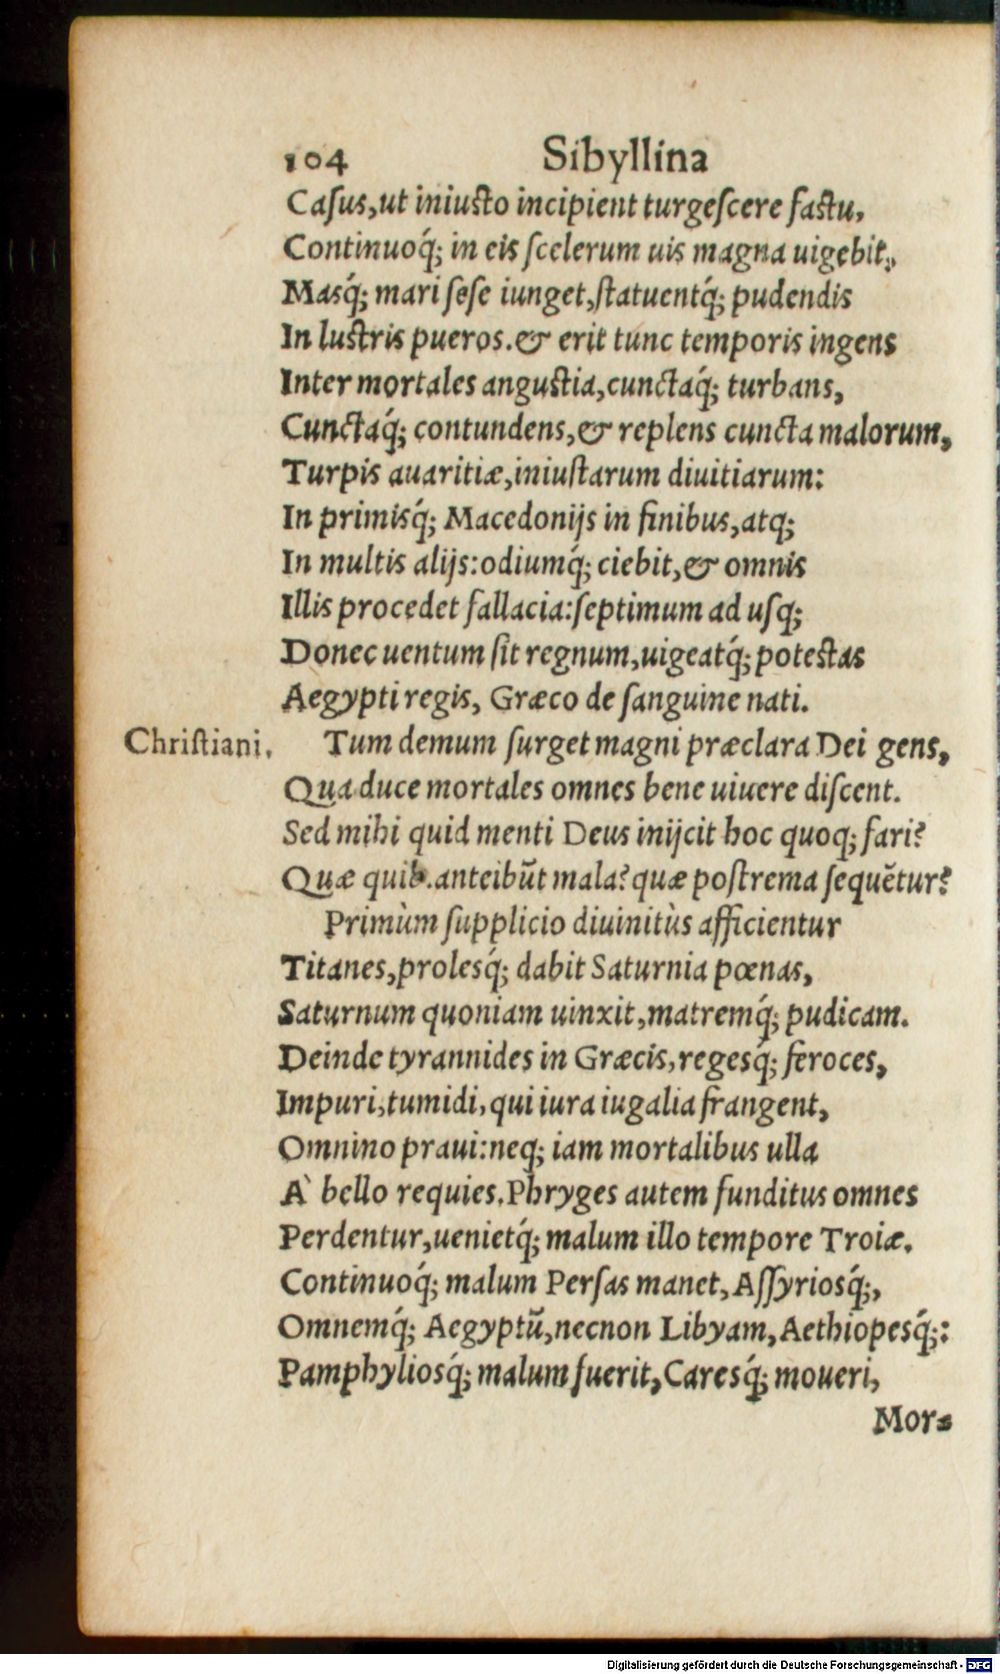 104 Sibyllina
Caſus,ut iniuſto incipient turgeſcere faſtu,
Continuoq́; in eis ſcelerum uis magna uigebit,
Masq́; mari ſeſe iunget,ſtatuentq́; pudendis
In luſtris pueros.& erit tunc temporis ingens
Inter mortales anguſtia,cunctaq́; turbans,
Cunctaq́; contundens,& replens cuncta malorum,
Turpis auaritiæ,iniuſtarum diuitiarum:
In primisq́; Macedonijs in finibus,atq;
In multis alijs:odiumq́; ciebit,& omnis
Illis procedet fallacia:ſeptimum ad uſq;
Donec uentum ſit regnum,uigeatq́; poteſtas
Aegypti regis, Græco de ſanguine nati.
Chriſtiani. Tum demum ſurget magni præclara Dei gens,
Qua duce mortales omnes bene uiuere diſcent.
Sed mihi quid menti Deus inijcit hoc quoq; fari?
Quæ quib.anteibūt mala?quæ poſtrema ſequētur?
Primùm ſupplicio diuinitùs afficientur
Titanes,prolesq́; dabit Saturnia pœnas,
Saturnum quoniam uinxit,matremq́; pudicam.
Deinde tyrannides in Græcis,regesq́; feroces,
Impuri,tumidi,qui iura iugalia frangent,
Omnino praui:neq; iam mortalibus ulla
À bello requies.Phryges autem funditus omnes
Perdentur,uenietq́; malum illo tempore Troiæ.
Continuoq́; malum Perſas manet,Aſſyriosq́;,
Omnemq́; Aegyptū,necnon Libyam,Aethiopesq́;:
Pamphyliosq́; malum fuerit,Caresq́; moueri,
Mor-
Digitalisierung gefördert durch die Deutsche Forschungsgemeinschaft - DFG